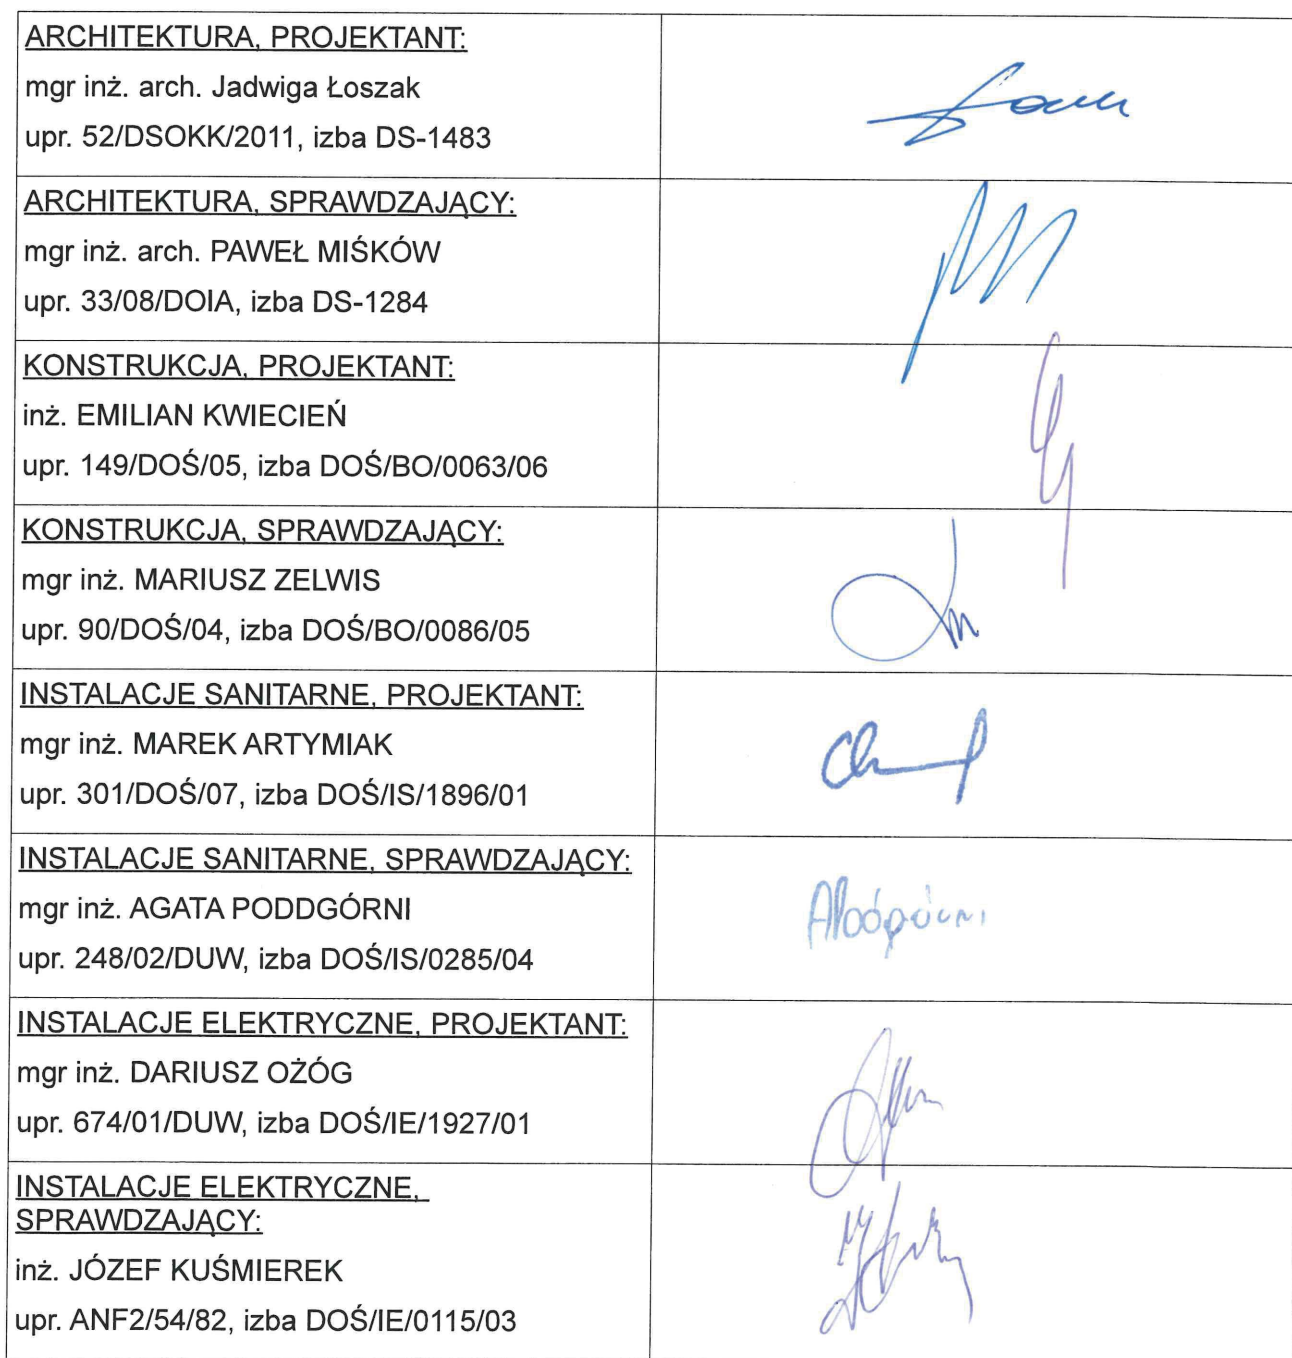 ARCHITEKTURA, PROJEKTANT:
mgr inż. arch. Jadwiga Łoszak
upr. 52/DSOKK/2011, izba DS-1483
ARCHITEKTURA, SPRAWDZAJĄCY:
mgr inż. arch. PAWEŁ MIŚKÓW
upr. 33/08/DOIA, izba DS-1284
KONSTRUKCJA, PROJEKTANT:
inż. EMILIAN KWIECIEŃ
upr. 149/DOŚ/05, izba DOŚ/BO/0063/06
KONSTRUKCJA, SPRAWDZAJĄCY:
mgr inż. MARIUSZ ZELWIS
upr. 90/DOŚ/04, izba DOŚ/BO/0086/05
INSTALACJE SANITARNE, PROJEKTANT:
mgr inż. MAREK ARTYMIAK
upr. 301/DOŚ/07, izba DOŚ/IS/1896/01
INSTALACJE SANITARNE, SPRAWDZAJĄCY:
mgr inż. AGATA PODDGÓRNI
upr. 248/02/DUW, izba DOŚ/IS/0285/04
INSTALACJE ELEKTRYCZNE, PROJEKTANT:
mgr inż. DARIUSZ OŻÓG
upr. 674/01/DUW, izba DOŚ/IE/1927/01
INSTALACJE ELEKTRYCZNE,
SPRAWDZAJĄCY:
inż. JÓZEF KUŚMIEREK
upr. ANF2/54/82, izba DOŚ/IE/0115/03